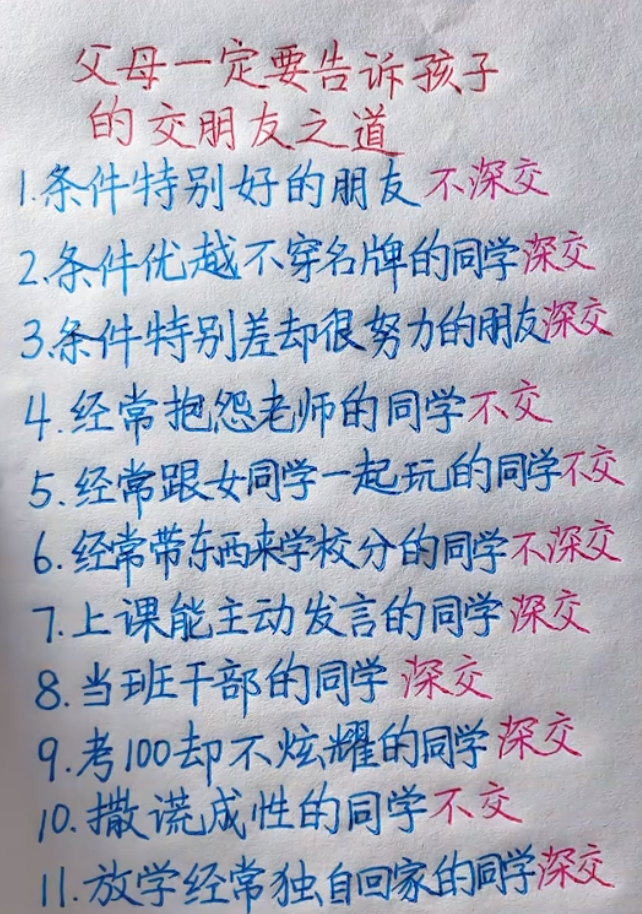 父母一定要告诉孩子
的交朋友之道
1.条件特别好的朋友 不深交
2.条件优越不穿名牌的同学深交
3.条件特别差却很努力的朋友深交
4.经常抱怨老师的同学不交
5.经常跟女同学一起玩的同学不交
6.经常带东西来学校分的同学不深交
7.上课能主动发言的同学 深交
8.当班干部的同学 深交
9.考100却不炫耀的同学 深交
10.撒谎成性的同学不交
11.放学经常独自回家的同学深交